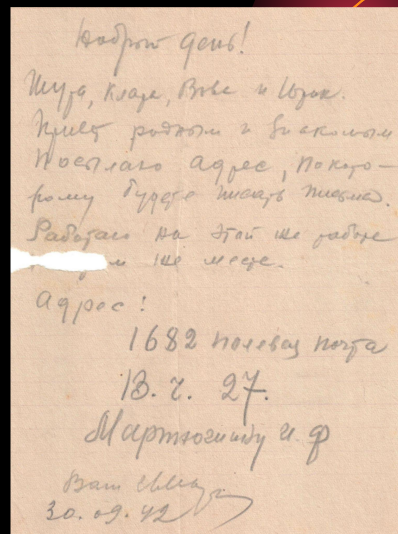 Добрый день!
Шура, Клара, Вова и Юрик.
Привет родным и знакомым
Посылаю адрес, по кото-
рому будете писать письма.
Работаю на этой же работе
м же месте.
Адрес:
1682 полевая почта
В. ч. 27.
Мартюгину И. Ф
Ваш
30.09.42